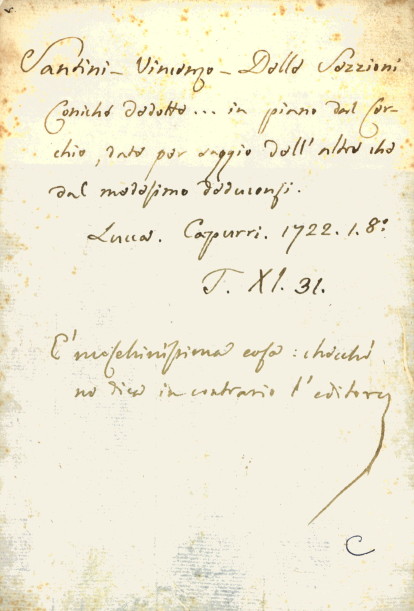 Santini - Vincenzo - Delle Sezzioni
Coniche dedotte ... in piano dal Cer-
chio, date per saggio dell'altre che
dal medesimo deduconsi.
Lucca. Capurri. 1722. 1. 8º
T. XI. 31.
E' meschinissima cosa: checchè
ne dica in contrario l'editore
C